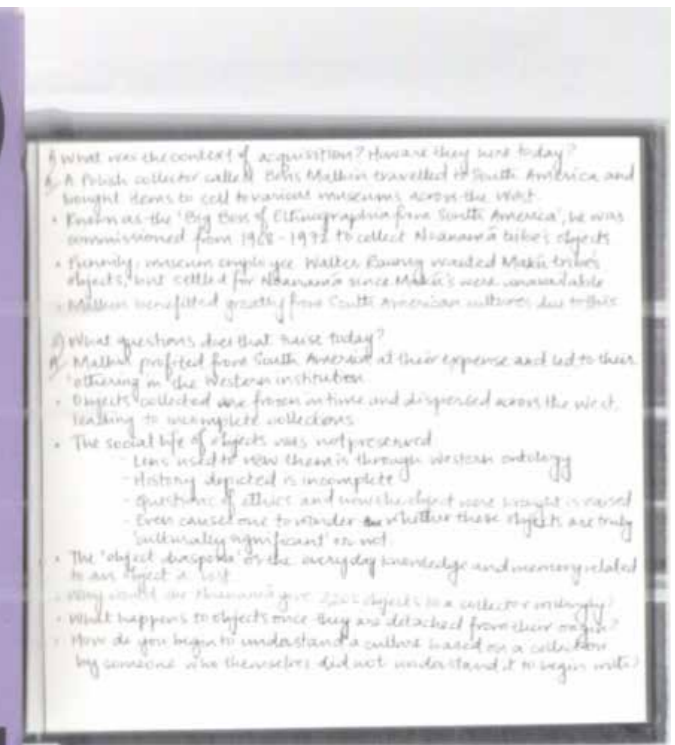 What was the context of acquisition? How are they here today?
A. A Polish collector called Boris Malkin travelled to South America and
bought items to sell to various museums across the West
• Known as the 'Big Boss of Ethnographia from South America', he was
commissioned from 1968-1972 to collect Noanamā tribe's objects
• Funnily, museum employee Walter wanted Makú tribe's
objects, but settled for Noanamā since Makú's were unavailable
• Malkin benefitted greatly from South American cultures due to this
What questions does that raise today?
A. Malkin profited from South America at their expense and led to their
'othering' in the Western institution
• Objects collected are frozen in time and dispersed across the west,
leading to incomplete collections
• The social life of objects was not preserved
- Lens used to view them is through western ontology
- History depicted is incomplete
- Questions of ethics and how the object were brought is raised
- Even causes one to wonder whether these objects are truly
'culturally significant' or not
• The 'object diaspora' or the everyday knowledge and memory related
to an object is lost
• Why would the give objects to a collector willingly?
• What happens to objects once they are detached from their origin?
• How do you begin to understand a culture based on a collection
by someone who themselves did not understand it to begin with?